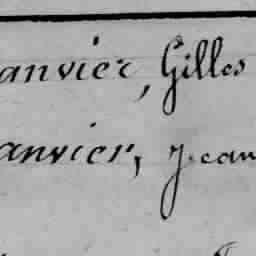 anvier, Gilles
anvier, Jean